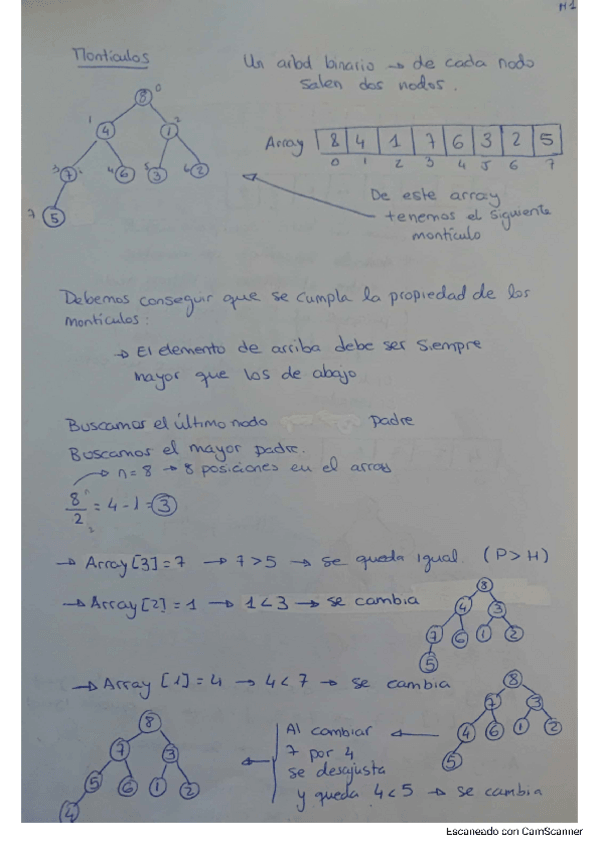 M1
Montículos
Un arbol binario → de cada nodo
salen dos nodos.
8 0
1 4 1 2
3 7 4 6 5 3 6 2
7 5
Array 8 4 1 7 6 3 2 5
0 1 2 3 4 5 6 7
De este array
tenemos el siguiente
montículo
Debemos conseguir que se cumpla la propiedad de los
montículos:
→ El elemento de arriba debe ser siempre
mayor que los de abajo
Buscamos el último nodo padre
Buscamos el mayor padre.
→ n = 8 → 8 posiciones en el array
8/2 = 4 - 1 = 3
→ Array [3] = 7 → 7 > 5 → se queda igual. (P > H)
→ Array [2] = 1 → 1 < 3 → se cambia
8
4 3
7 6 1 2
5
→ Array [1] = 4 → 4 < 7 → se cambia
8
7 3
4 6 1 2
5
Al cambiar
7 por 4
se desajusta
y queda 4 < 5 → se cambia
8
7 3
5 6 1 2
4
Escaneado con CamScanner